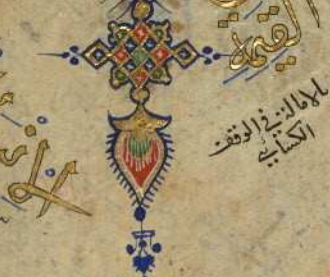 القيمة
بالامالة في الوقف
الكسايي